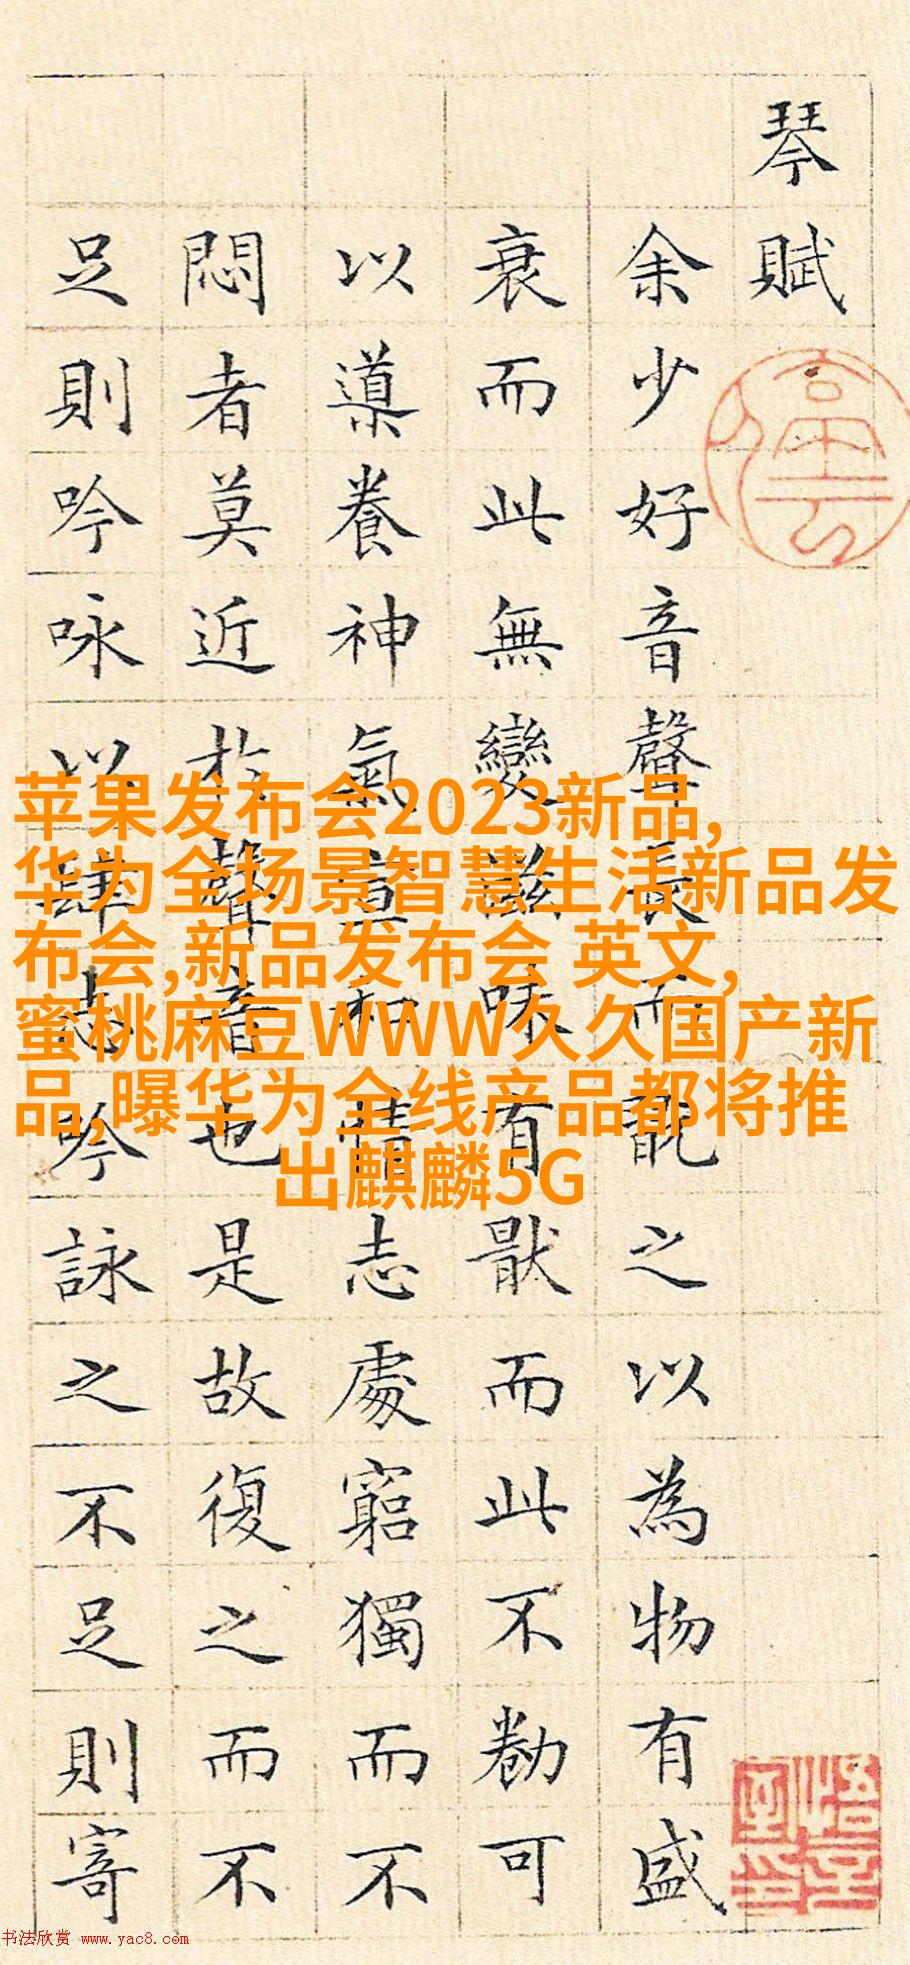 琴賦
余少好音聲長而翫之以為物有盛
衰而此無變滋味有猒而此不勌可
以導養神氣宣和情志處窮獨而不
悶者莫近於聲音也是故復之而不
足則吟咏以肆志吟詠之不足則寄
苹果发布会2023新品,
华为全场景智慧生活新品发
布会,新品发布会 英文,
蜜桃麻豆WWW久久国产新
品,曝华为全线产品都将推
出麒麟5G
书法欣赏 www.yac8.com